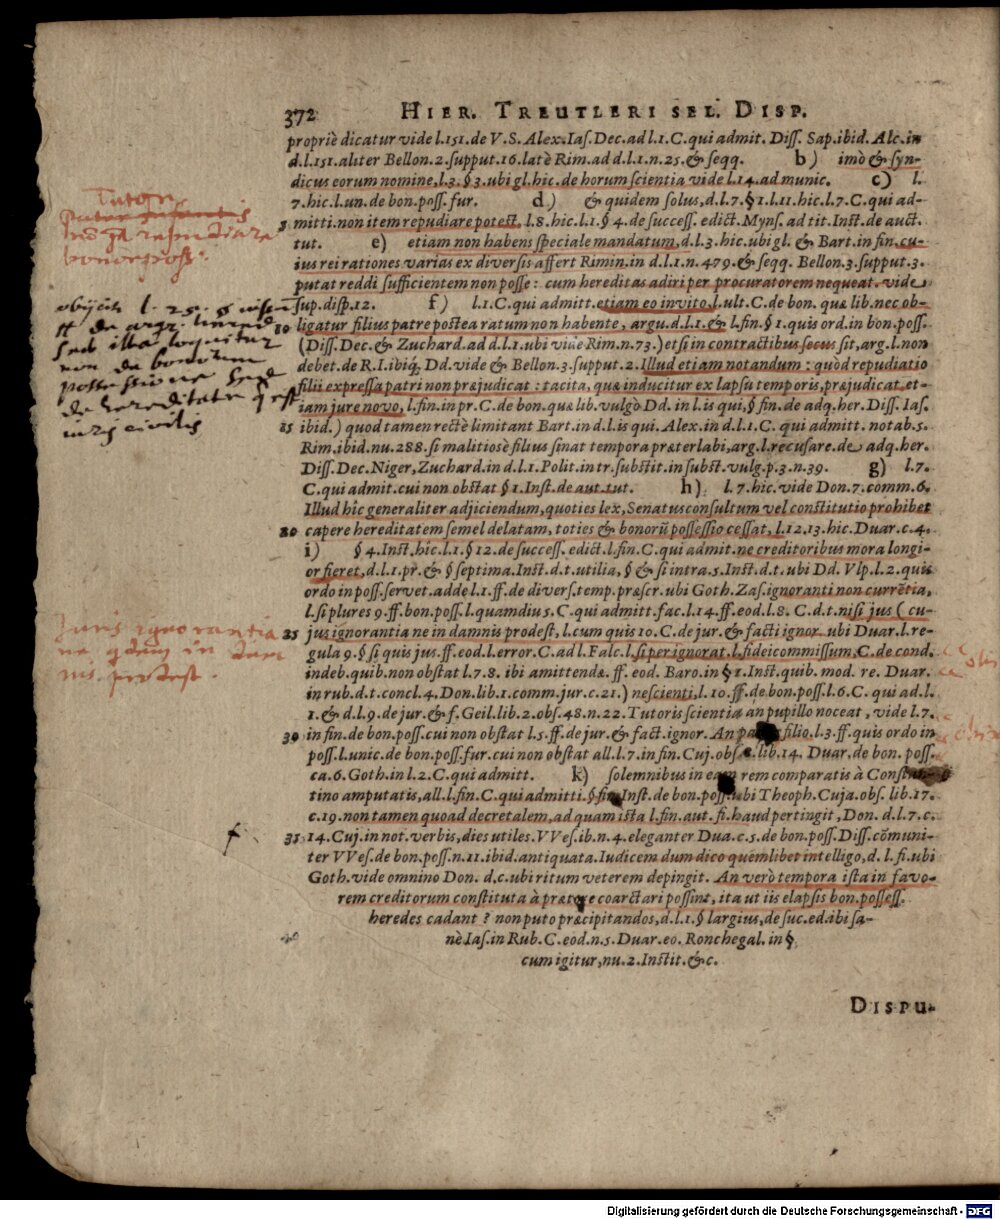 372 HIER. TREUTLERI SEL. DISP.
propriè dicatur vide l.151.de V.S. Alex.Iaſ.Dec.ad l.1.C.qui admit. Diſſ. Sap.ibid. Alc.in
d.l.151.aliter Bellon.2.ſupput.16.latè Rim.ad d.l.1.n.25.& ſeqq. b) imò & ſyn-
dicus eorum nomine,l.3.§3.ubi gl.hic.de horum ſcientia vide l.14.ad munic. c) l.
7.hic.l.un.de bon.poſſ.fur. d.) & quidem ſolus,d.l.7.§1.l.11.hic.l.7.C.qui ad-
5 mitti.non item repudiare poteſt, l.8.hic.l.1.§4.de ſucceſſ. edict.Mynſ.ad tit.Inſt.de auct.
tut. e) etiam non habens ſpeciale mandatum,d.l.3.hic.ubi gl. & Bart.in fin.cu-
ius rei rationes varias ex diverſis affert Rimin.in d.l.1.n.479.& ſeqq. Bellon.3.ſupput.3.
putat reddi ſufficientem non poſſe: cum hereditas adiri per procuratorem nequeat. vide
ſup.diſp.12. f) l.1.C.qui admitt.etiam eo invito,l.ult.C.de bon.quæ lib.nec ob-
10 ligatur filius patre poſtea ratum non habente, argu.d.l.1.& l.fin.§1.quis ord.in bon.poſſ.
(Diſſ.Dec.& Zuchard.ad d.l.1.ubi vide Rim.n.73.) et ſi in contractibus ſecus ſit,arg.l.non
debet.de R.I.ibiq́. Dd.vide & Bellon.3.ſupput.2.Illud etiam notandum: quòd repudiatio
filii expreſſa patri non præjudicat: tacita, quæ inducitur ex lapſu temporis,præjudicat et-
iam jure novo,l.fin.in pr.C.de bon.quæ lib.vulgò Dd. in l.is qui,§fin.de adq.her.Diſſ.Iaſ.
15 ibid.) quod tamen rectè limitant Bart.in d.l.is qui. Alex.in d.l.1.C. qui admitt. notab.5.
Rim.ibid.nu.288.ſi malitioſè filius ſinat tempora præterlabi,arg.l.recuſare.de adq.her.
Diſſ.Dec.Niger,Zuchard.in d.l.1 Polit.in tr.ſubſtit.in ſubſt.vulg.p.3.n.39. g) l.7.
C.qui admit.cui non obſtat §1.Inſt.de aut.tut. h) l.7.hic.vide Don.7.comm.6.
Illud hic generaliter adjiciendum,quoties lex, Senatusconſultum vel conſtitutio prohibet
20 capere hereditatem ſemel delatam, toties & bonorũ poſſeſſio ceſſat, l.12.13.hic.Duar.c.4.
i) §4.Inſt.hic.l.1.§12.de ſucceſſ.edict.l.fin.C.qui admit.ne creditoribus mora longi-
or fieret,d.l.1.pr.& §ſeptima.Inſt.d.t.utilia, § & ſi intra.5.Inſt.d.t.ubi Dd. Vlp.l.2.quis
ordo in poſſ.ſervet.adde l.1.ff.de diverſ.temp.præſcr.ubi Goth.Zaſ.ignoranti non currẽtia,
l.ſi plures 9.ff.bon.poſſ.l.quamdiu 5.C.qui admitt.fac.l.14.ff.eod.l.8.C.d.t.niſi jus (cu-
25 jus ignorantia ne in damnis prodeſt, l.cum quis 10.C.de jur. & facti ignor. ubi Duar.l.re-
gula 9.§ſi quis jus.ff.eod.l.error.C.ad l.Falc.l.ſi per ignorat.l.fideicommiſſum,C.de cond.
indeb.quib.non obſtat l.7.8. ibi amittendæ.ff. eod. Baro.in §1.Inſt.quib.mod. re. Duar.
in rub.d.t.concl.4.Don.lib.1.comm.jur.c.21.) neſcienti,l.10.ff.de bon.poſſ.l.6.C. qui ad.l.
1.& d.l.9.de jur.& f.Geil.lib.2.obſ.48.n.22.Tutoris ſcientia an pupillo noceat, vide l.7.
30 in fin.de bon.poſſ.cui non obſtat l.5.ff.de jur.& fact.ignor. An patris filio.l.3.ff.quis ordo in
poſſ.l.unic.de bon.poſſ.fur.cui non obſtat all.l.7.in fin.Cuj.obſ.e.lib.14. Duar.de bon.poſſ.
ca.6.Goth.in l.2.C.qui admitt. k) ſolemnibus in eam rem comparatis à Conſtan-
tino amputatis,all.l.fin.C.qui admitti.§fin.Inſt.de bon.poſſ.ubi Theoph.Cuja.obſ.lib.17.
c.19.non tamen quoad decretalem,ad quam iſta l.fin.aut.fi.haud pertingit, Don. d.l.7.c.
35 14.Cuj.in not.verbis,dies utiles.VVeſ.ib.n.4.eleganter Dua.c.5.de bon.poſſ.Diſſ.cõmuni-
ter VVeſ.de bon.poſſ.n.11.ibid.antiquata.Iudicem dum dico quemlibet intelligo,d.l.fi.ubi
Goth.vide omnino Don. d.c.ubi ritum veterem depingit. An verò tempora iſta in favo-
rem creditorum conſtituta à prætore coarctari poſſint, ita ut iis elapſis bon.poſſeſſ.
heredes cadant? non puto præcipitandos,d.l.1.§largius,de ſuc.ed.ibi ſa-
40 nè Iaſ.in Rub.C.eod.n.5.Duar.eo. Ronchegal.in §
cum igitur,nu.2.Inſtit.&c.
DISPU-
Tutor
repudiare
bonor poss.
obijcit l. 25.
ff de
sed illa loquitur
non de bonorum
possessione sed
de hereditate
iuris civilis
Juris ignorantia
ne quidem in dam
nis prodest.
Digitalisierung gefördert durch die Deutsche Forschungsgemeinschaft - DFG